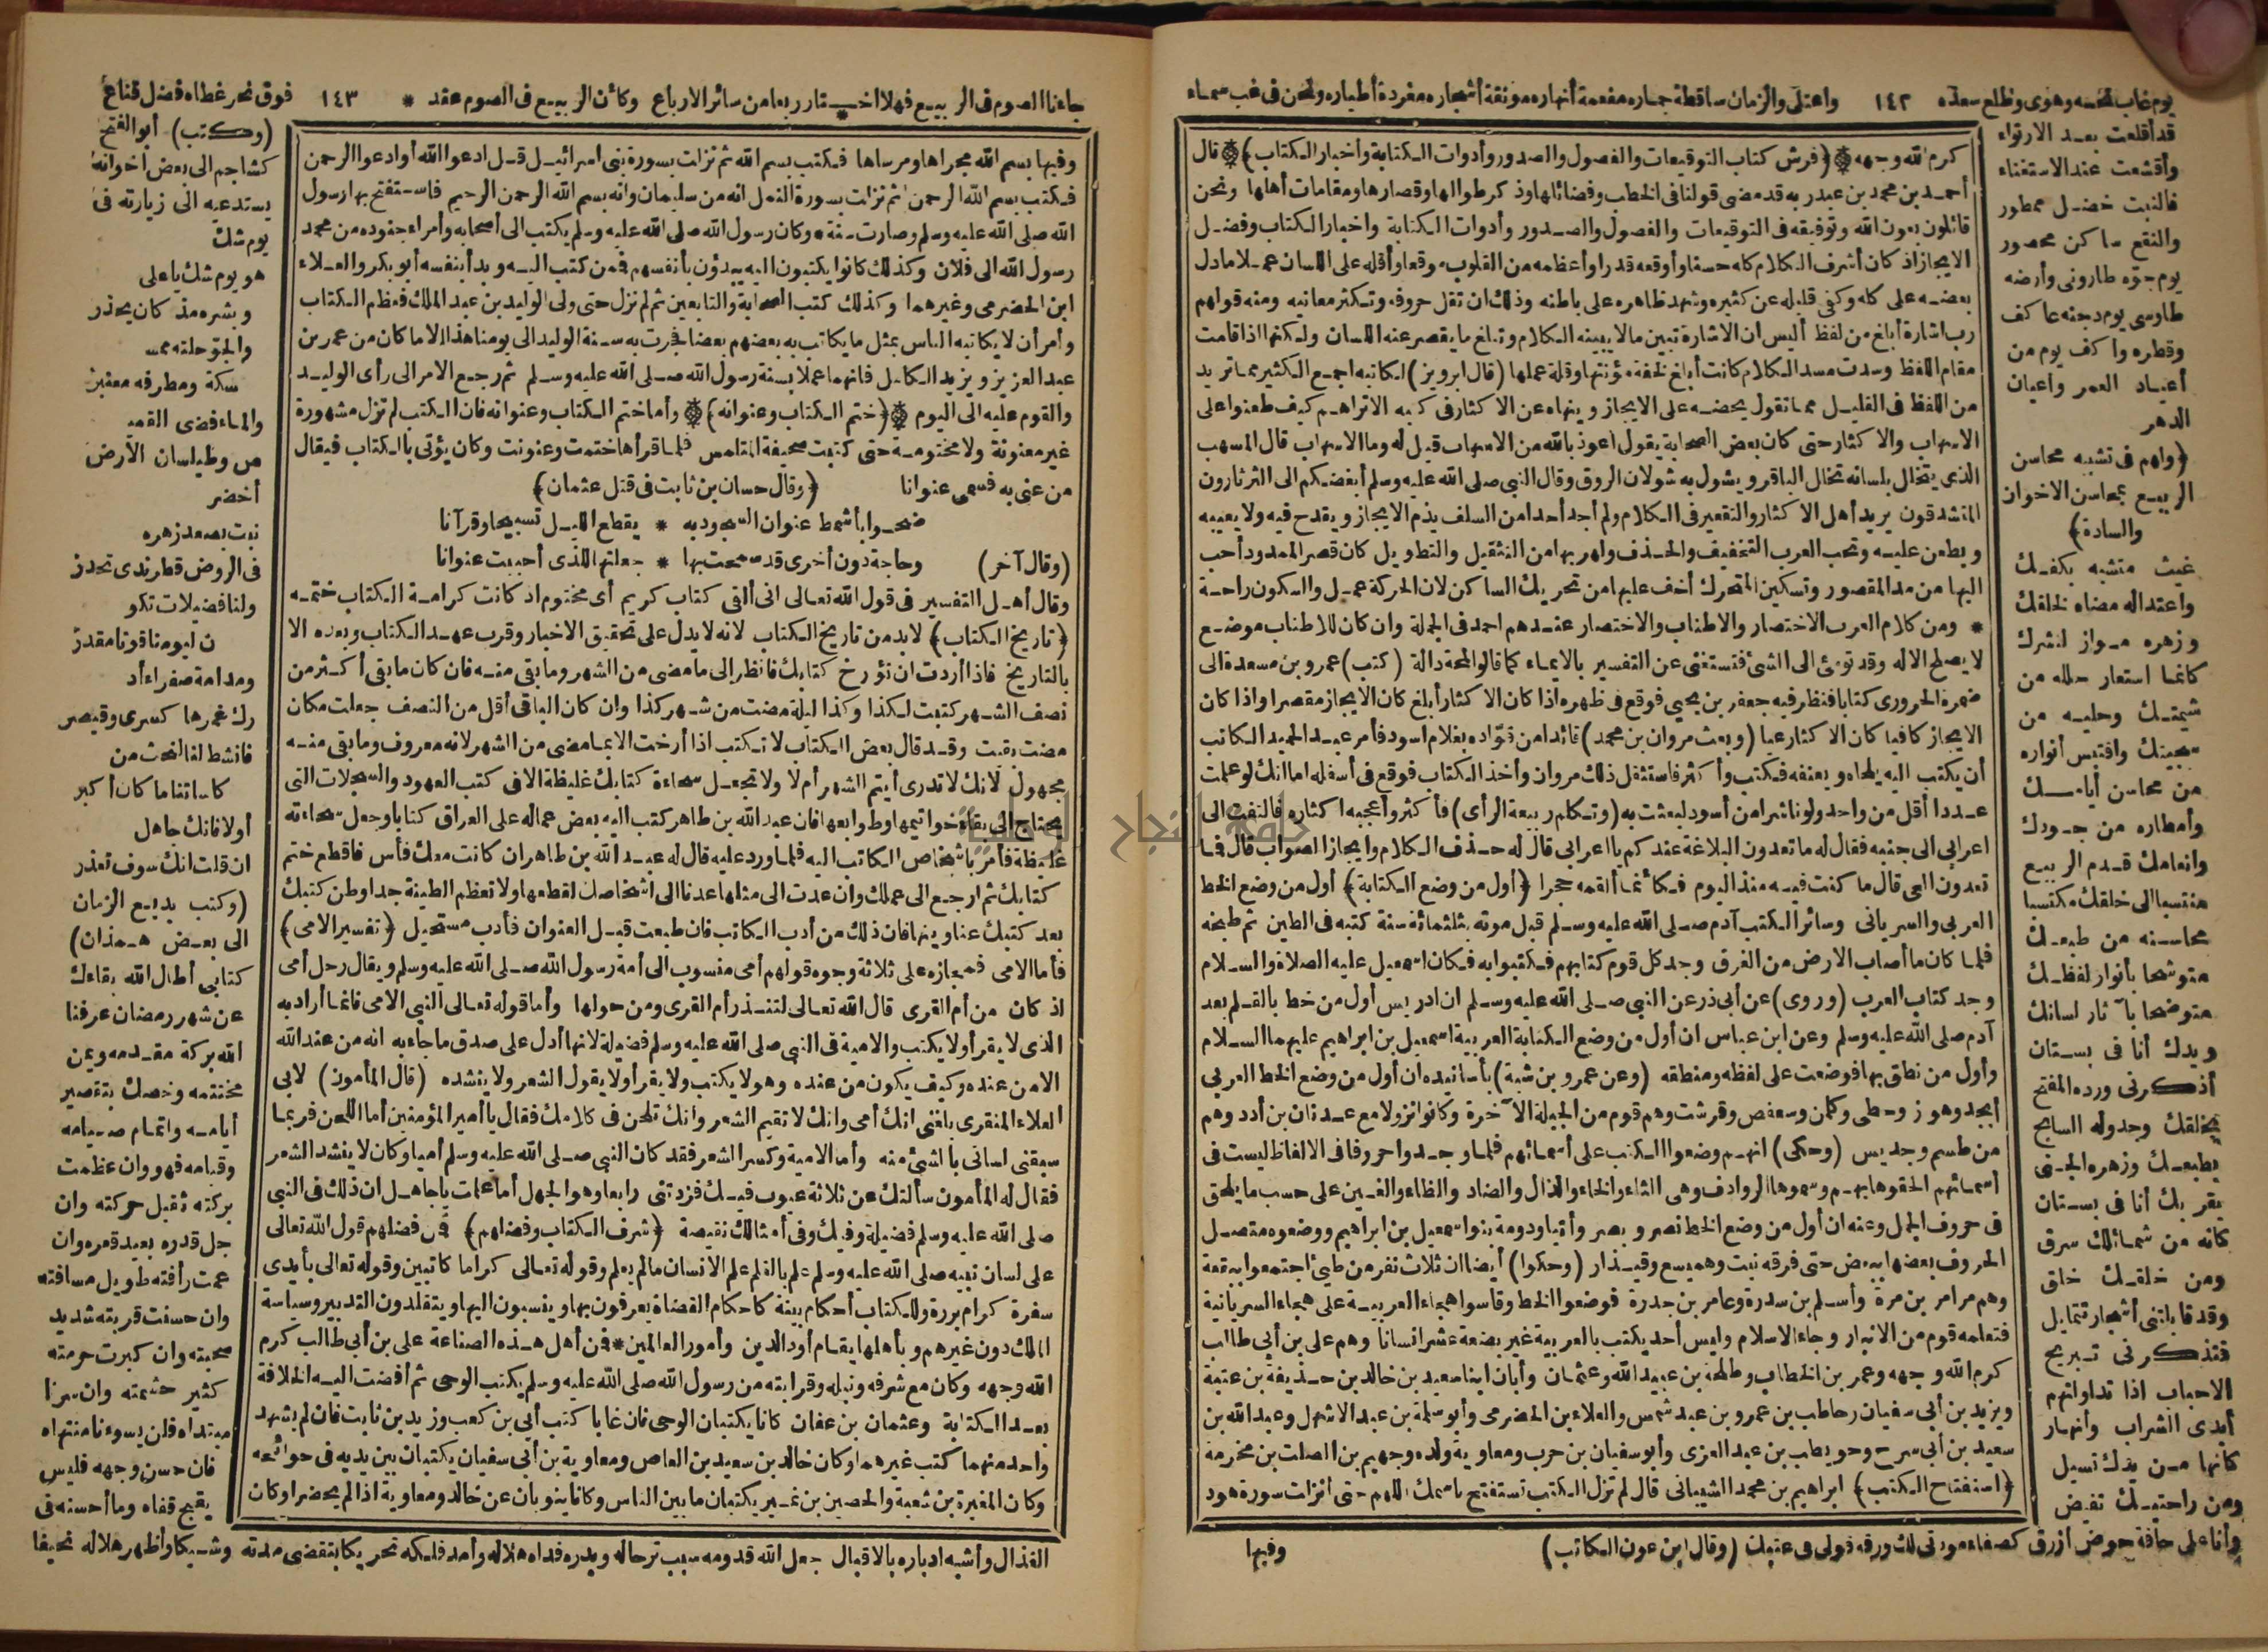 يوم غاب نحسه وهوى وطلع سعده ١٤٢ واعتلى والزمان ساقطة جماره مفعمة أنهاره مونقة أشجاره مغردة أطياره ونحن فى غب سماء
قد أقلعت بعد الارتواء
وأقشعت عند الاستغناء
فالنبت خضل ممطور
والنقع ساكن محصور
يوم جوّه طارونى وأرضه
طاوسى يوم دجنته عاكف
وقطره واكف يوم من
أعياد العمر وأعيان
الدهر
﴿ولهم فى تشبيه محاسن
الربيع بمحاسن الاخوان
والسادة﴾
غيث متشبه بكفك
واعتداله مضاه لخلقك
وزهره مواز لنشرك
كانما استعار حلله من
شيمتك وحليه من
سجيتك واقتبس أنواره
من محاسن أيامك
وأمطاره من جودك
وانعامك قدم الربيع
منتسبا الى خلقك مكتسبا
محاسنه من طبعك
متوشحا بأنوار لفظك
متوضحا بآثار لسانك
ويدك أنا فى بستان
أذكرنى ورده المفتح
بخلقك وجدوله السابح
بطبعك وزهره الجنى
بقربك أنا فى بستان
كانه من شمائلك سرق
ومن خلقك خلق
وقد قابلتنى أشجار تتمايل
فتذكرنى تبريح
الاحباب اذا تداولتهم
أيدى الشراب وأنهار
كانها من يدك تسيل
ومن راحتيك تفيض
وأنا على حافة حوض أزرق كصفاء مودتى لك ورقة قولى فى عتبك (وقال ابن عون الكاتب)
كرم الله وجهه ﴿فرش كتاب التوقيعات والفصول والصدور وأدوات الكتابة وأخبار الكتاب﴾ قال
أحمد بن محمد بن عبد ربه قد مضى قولنا فى الخطب وفضائلها وذكر طوالها وقصارها ومقامات أهلها ونحن
قائلون بعون الله وتوفيقه فى التوقيعات والفصول والصدور وأدوات الكتابة واخبار الكتاب وفضل
الايجاز اذ كان أشرف الكلام كله حسنا وأوقعه قدرا وأعظمه من القلوب موقعا وأقله على اللسان عملا مادل
بعضه على كله وكفى قليله عن كثيره وشهد ظاهره على باطنه وذلك ان تقل حروفه وتكثر معانيه ومنه قولهم
رب اشارة أبلغ من لفظ أليس ان الاشارة تبين ما لا يبينه الكلام وتبلغ ما يقصر عنه اللسان ولكنها اذا قامت
مقام اللفظ وسدت مسد الكلام كانت أبلغ لخفة مؤنتها وقلة عملها (قال ابرويز) لكاتبه اجمع الكثير مما تريد
من اللفظ فى القليل مما تقول يحضه على الايجاز وينهاه عن الاكثار فى كتبه الا تراهم كيف طعنوا على
الاسهاب والاكثار حتى كان بعض الصحابة يقول أعوذ بالله من الاسهاب قيل له وما الاسهاب قال المسهب
الذى يتخلل بلسانه تخلل الباقر ويشول به شولان الروق وقال النبى صلى الله عليه وسلم أبغضكم الى الثرثارون
المتشدقون يريد أهل الاكثار والتقعير فى الكلام ولم أجد أحدا من السلف يذم الايجاز ويقدح فيه ولا يعيبه
ويطعن عليه وتحب العرب التخفيف والحذف ولهربها من التثقيل والتطويل كان قصر الممدود أحب
اليها من مد المقصور وتسكين المتحرك أخف عليها من تحريك الساكن لان الحركة عمل والسكون راحة
* ومن كلام العرب الاختصار والاطناب والاختصار عندهم احمد فى الجملة وان كان للاطناب موضع
لا يصلح الا له وقد تومئ الى الشئ فتستغنى عن التفسير بالايماء كما قالوا لمحة دالة (كتب) عمرو بن مسعدة الى
ضمرة الحرورى كتابا فنظر فيه جعفر بن يحيى فوقع فى ظهره اذا كان الاكثار أبلغ كان الايجاز مقصرا واذا كان
الايجاز كافيا كان الاكثار عيا (وبعث مروان بن محمد) قائدا من قوّاده بغلام اسود فأمر عبد الحميد الكاتب
أن يكتب اليه يلحاه ويعنفه فكتب وأكثر فاستثقل ذلك مروان وأخذ الكتاب فوقع فى أسفله اما انك لو علمت
عددا أقل من واحد ولونا شرا من أسود لبعثت به (وتكلم ربيعة الرأى) فأكثر وأعجبه اكثاره فالتفت الى
اعرابى الى جنبه فقال له ما تعدون البلاغة عندكم يا اعرابى قال له حذف الكلام وايجاز الصواب قال فما
تعدون العى قال ما كنت فيه منذ اليوم فكأنما ألقمه حجرا ﴿أول من وضع الكتابة﴾ أول من وضع الخط
العربى والسريانى وسائر الكتب آدم صلى الله عليه وسلم قبل موته بثلثمائة سنة كتبه فى الطين ثم طبخه
فلما كان ما أصاب الارض من الغرق وجد كل قوم كتابهم فكتبوا به فكان اسمعيل عليه الصلاة والسلام
وجد كتاب العرب (وروى) عن أبى ذر عن النبى صلى الله عليه وسلم ان ادريس أول من خط بالقلم بعد
آدم صلى الله عليه وسلم وعن ابن عباس ان أول من وضع الكتابة العربية اسمعيل بن ابراهيم عليهما السلام
وأول من نطق بها فوضعت على لفظه ومنطقه (وعن عمرو بن شبة) بأسانيده ان أول من وضع الخط العربى
أبجد وهوز وحطى وكلمن وسعفص وقرشت وهم قوم من الجبلة الآخرة وكانوا نزولا مع عدنان بن أدد وهم
من طسم وجديس (وحكى) انهم وضعوا الكتب على أسمائهم فلما وجدوا حروفا فى الالفاظ ليست فى
أسمائهم الحقوها بهم وسموها الروادف وهى الثاء والخاء والذال والضاد والظاء والغين على حسب ما يلحق
فى حروف الجمل وعنه ان أول من وضع الخط نصر وبصر وأتيا ودومة بنو اسمعيل بن ابراهيم ووضعوه متصل
الحروف بعضها ببعض حتى فرقه نبت وهميسع وقيذار (وحكوا) أيضا ان ثلاث نفر من طيئ اجتمعوا ببقعة
وهم مرامر بن مرة وأسلم بن سدرة وعامر بن جدرة فوضعوا الخط وقاسوا هجاء العربية على هجاء السريانية
فتعلمه قوم من الانبار وجاء الاسلام وليس أحد يكتب بالعربية غير بضعة عشر انسانا وهم على بن أبى طالب
كرم الله وجهه وعمر بن الخطاب وطلحة بن عبيد الله وعثمان وأبان ابنا سعيد بن خالد بن حذيفة بن عتبة
ويزيد بن أبى سفيان وحاطب بن عمرو بن عبد شمس والعلاء بن الحضرمى وأبو سلمة بن عبد الاشهل وعبد الله بن
سعيد بن أبى سرح وحويطب بن عبد العزى وأبو سفيان بن حرب ومعاوية ولده وجهيم بن الصلت بن مخرمة
﴿استفتاح الكتب﴾ ابراهيم بن محمد الشيبانى قال لم تزل الكتب تستفتح باسمك اللهم حتى انزلت سورة هود
وفيها
جاءنا الصوم فى الربيع فهلا اختار ربعا من سائر الارباع وكأن الربيع فى الصوم عقد * ١٤٣ فوق نحر غطاه فضل قناع
وفيها بسم الله مجراها ومرساها فكتب بسم الله ثم نزلت بسورة بنى اسرائيل قل ادعوا الله أو ادعوا الرحمن
فكتب بسم الله الرحمن ثم نزلت بسورة النمل انه من سليمان وانه بسم الله الرحمن الرحيم فاستفتح بها رسول
الله صلى الله عليه وسلم وصارت سنة وكان رسول الله صلى الله عليه وسلم يكتب الى أصحابه وأمراء جنوده من محمد
رسول الله الى فلان وكذلك كانوا يكتبون اليه يبدؤن بأنفسهم فممن كتب اليه وبدأ بنفسه أبو بكر والعلاء
ابن الحضرمى وغيرهما وكذلك كتب الصحابة والتابعين ثم لم تزل حتى ولى الوليد بن عبد الملك فعظم الكتاب
وأمر أن لا يكاتبه الناس بمثل ما يكاتب به بعضهم بعضا فجرت به سنة الوليد الى يومنا هذا الا ما كان من عمر بن
عبد العزيز ويزيد الكامل فانهما عملا بسنة رسول الله صلى الله عليه وسلم ثم رجع الامر الى رأى الوليد
والقوم عليه الى اليوم ﴿ختم الكتاب وعنوانه﴾ وأما ختم الكتاب وعنوانه فان الكتب لم تزل مشهورة
غير معنونة ولا مختومة حتى كتبت صحيفة المتلمس فلما قرأها ختمت وعنونت وكان يؤتى بالكتاب فيقال
من عنى به فسمى عنوانا ﴿وقال حسان بن ثابت فى قتل عثمان﴾
ضحوا بأشمط عنوان السجود به * يقطع الليل تسبيحا وقرآنا
(وقال آخر) وحاجة دون أخرى قد سمحت بها * جعلتها للذى أحببت عنوانا
وقال أهل التفسير فى قول الله تعالى انى ألقى كتاب كريم أى مختوم اذ كانت كرامة الكتاب ختمه
﴿تاريخ الكتاب﴾ لابد من تاريخ الكتاب لانه لا يدل على تحقيق الاخبار وقرب عهد الكتاب وبعده الا
بالتاريخ فاذا أردت ان تؤرخ كتابك فانظر إلى ما مضى من الشهر وما بقى منه فان كان ما بقى أكثر من
نصف الشهر كتبت لكذا وكذا ليلة مضت من شهر كذا وان كان الباقى أقل من النصف جعلت مكان
مضت بقيت وقد قال بعض الكتاب لا تكتب اذا أرخت الا بما مضى من الشهر لانه معروف وما بقى منه
مجهول لانك لا تدرى أيتم الشهر أم لا ولا تجعل سحاءة كتابك غليظة الا فى كتب العهود والسجلات التى
يحتاج الى بقاء خواتيمها وطوابعها فان عبد الله بن طاهر كتب اليه بعض عماله على العراق كتابا وجعل سحاءته
غليظة فأمر باشخاص الكاتب اليه فلما ورد عليه قال له عبد الله بن طاهر ان كانت معك فأس فاقطع ختم
كتابك ثم ارجع الى عملك وان عدت الى مثلها عدنا الى اشخاصك لقطعها ولا تعظم الطينة جدا وطن كتبك
بعد كتبك عناوينها فان ذلك من أدب الكاتب فان طبعت قبل العنوان فأدب مستحيل ﴿تفسير الامى﴾
فأما الامى فمجازه على ثلاثة وجوه قولهم أمى منسوب الى أمة رسول الله صلى الله عليه وسلم ويقال رجل أمى
اذ كان من أم القرى قال الله تعالى لتنذر أم القرى ومن حولها وأما قوله تعالى النبى الامى فانما أراد به
الذى لا يقرأ ولا يكتب والامية فى النبى صلى الله عليه وسلم فضيلة لانها أدل على صدق ما جاء به انه من عند الله
الا من عنده وكيف يكون من عنده وهو لا يكتب ولا يقرأ ولا يقول الشعر ولا ينشده (قال المأمون) لابى
العلاء المنقرى بلغنى انك أمى وانك لا تقيم الشعر وانك تلحن فى كلامك فقال يا أمير المؤمنين أما اللحن فربما
سبقنى لسانى بالشئ منه وأما الامية وكسر الشعر فقد كان النبى صلى الله عليه وسلم أميا وكان لا ينشد الشعر
فقال له المأمون سألتك عن ثلاثة عيوب فيك فزدتنى رابعا وهو الجهل أما علمت يا جاهل ان ذلك فى النبى
صلى الله عليه وسلم فضيلة وفيك وفى أمثالك نقيصة ﴿شرف الكتاب وفضلهم﴾ فمن فضلهم قول الله تعالى
على لسان نبيه صلى الله عليه وسلم علم بالقلم علم الانسان ما لم يعلم وقوله تعالى كراما كاتبين وقوله تعالى بأيدى
سفرة كرام بررة وللكتاب أحكام بينة كاحكام القضاة يعرفون بها وينسبون اليها ويتقلدون التدبير وسياسة
الملك دون غيرهم وبأهلها يقام أود الدين وأمور العالمين * فمن أهل هذه الصناعة على بن أبى طالب كرم
الله وجهه وكان مع شرفه ونبله وقرابته من رسول الله صلى الله عليه وسلم يكتب الوحى ثم أفضت اليه الخلافة
بعد الكتابة وعثمان بن عفان كانا يكتبان الوحى فان غابا كتب أبى بن كعب وزيد بن ثابت فان لم يشهد
واحد منهما كتب غيرهما وكان خالد بن سعيد بن العاص ومعاوية بن أبى سفيان يكتبان بين يديه فى حوائجه
وكان المغيرة بن شعبة والحصين بن نمير يكتبان ما بين الناس وكانا ينوبان عن خالد ومعاوية اذا لم يحضرا وكان
(وكتب) أبو الفتح
كشاجم الى بعض أخوانه
يستدعيه الى زيارته فى
يوم شك
هو يوم شك يا على
وبشره مذ كان يحذر
والجو حلته ممـ
سكة ومطرفه معنبر
والماء فضى القميـ
ص وطيلسان الأرض
أخضر
نبت يصعد زهره
فى الروض قطر ندى تحدر
ولنا فضيلات تكو
ن ليومنا قوتا مقدر
ومدامة صفراء أد
رك عمرها كسرى وقيصر
فانشط لنا لنحث من
كاساتنا ما كان أكبر
أولا فانك جاهل
ان قلت انك سوف تعذر
(وكتب بديع الزمان
الى بعض همذان)
كتابى أطال الله بقاءك
عن شهر رمضان عرفنا
الله بركة مقدمه ويمن
مختتمه وخصك بتقصير
أيامه واتمام صيامه
وقيامه فهو وان عظمت
بركته ثقيل حركته وان
جل قدره بعيد قعره وان
عمت رأفته طويل مسافته
وان حسنت قربته شديد
صحبته وان كبرت حرمته
كثير حشمته وان سرنا
مبتداه فلن يسوءنا منتهاه
فان حسن وجهه فليس
يقبح قفاه وما أحسنه فى
القذال وأشبه ادباره بالاقبال جعل الله قدومه سبب ترحاله وبدره فداء هلاله وأمد فلكه تحريكا بتقضى مدته وشيكا وأظهر هلاله نحيفا
جامعة النجاح الوطنية